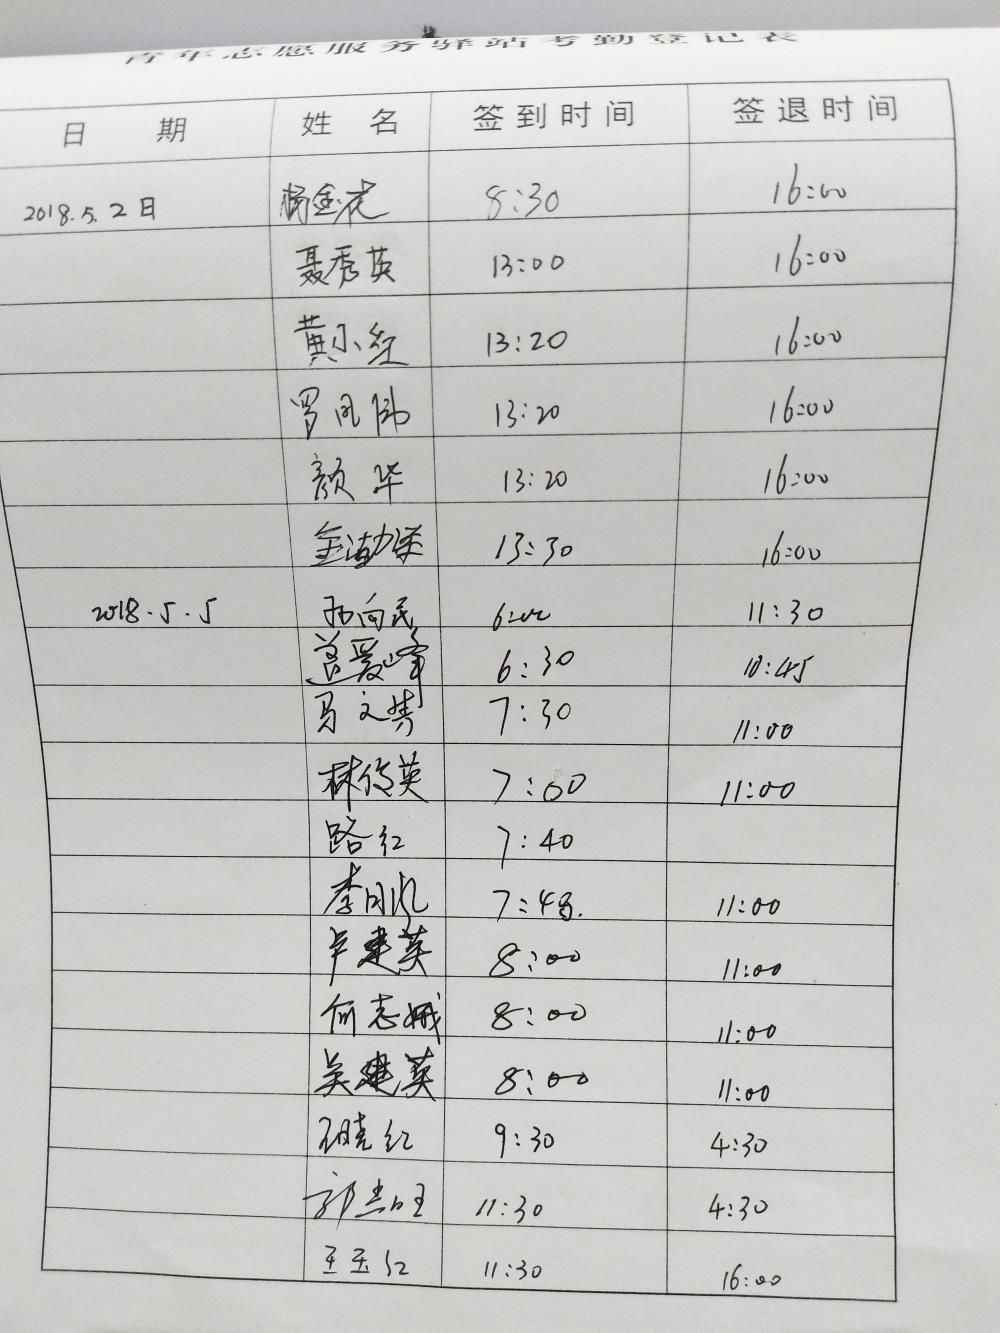 青年志愿服务驿站考勤登记表
日 期 姓 名 签到时间 签退时间
2018.5.2日 杨金花 8:30 16:00
聂秀英 13:00 16:00
黄小红 13:20 16:00
罗凤 13:20 16:00
颜华 13:20 16:00
金 13:30 16:00
2018.5.5 向民 6:00 11:30
爱峰 6:30 10:45
马文 7:30 11:00
林俊英 7:00 11:00
路红 7:40
李 7:48. 11:00
卢建英 8:00 11:00
何志娥 8:00 11:00
吴建英 8:00 11:00
晓红 9:30 4:30
郭 11:30 4:30
王玉红 11:30 16:00